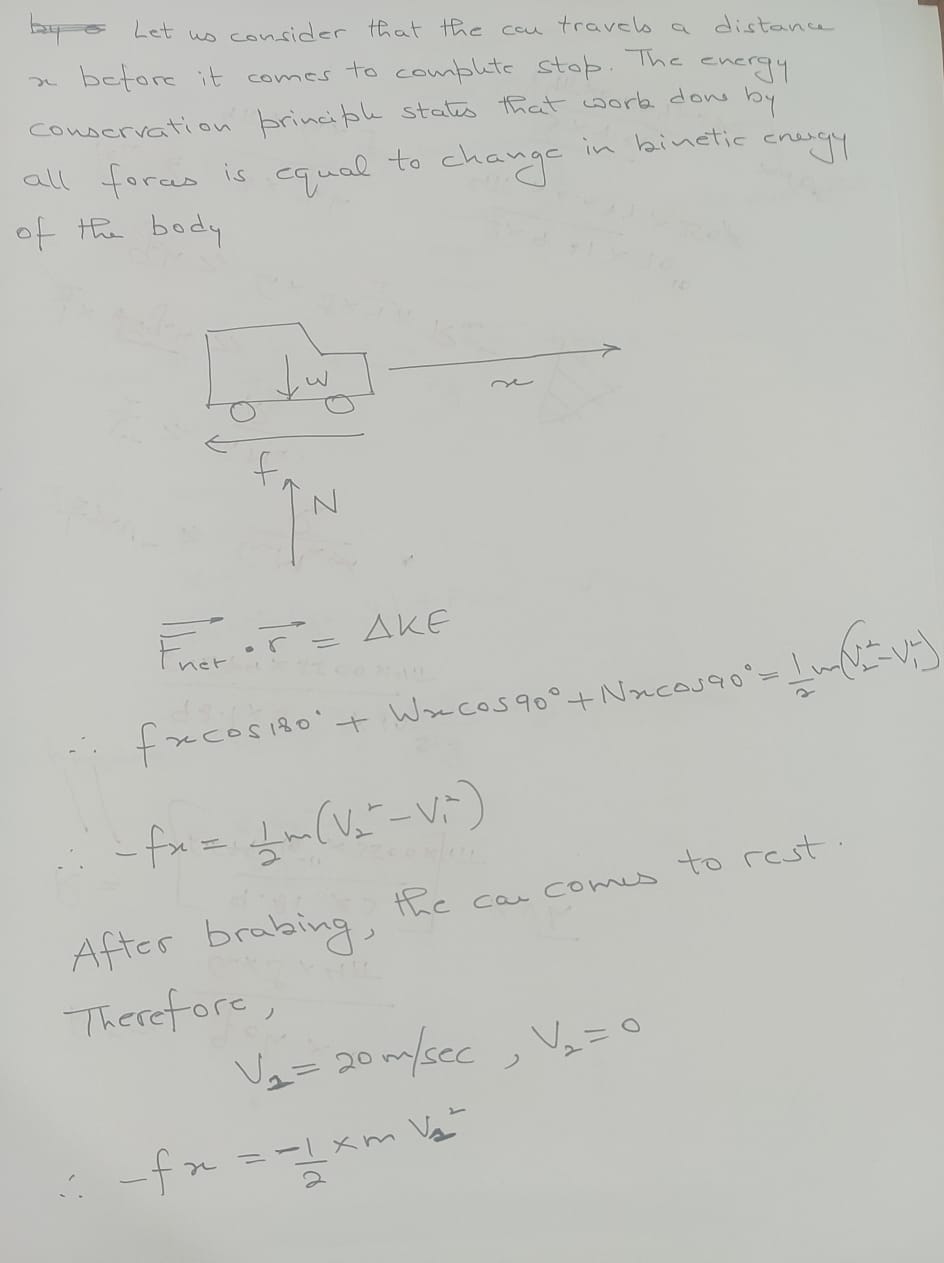 Let us consider that the car travels a distance
x before it comes to complete stop. The energy
conservation principle states that work done by
all forces is equal to change in kinetic energy
of the body
W
x
f
N
F⃗net · r⃗ = ΔKE
∴ fxcos180° + Wxcos90° + Nxcos90° = 1/2 m(V₂² - V₁²)
∴ -fx = 1/2 m(V₂² - V₁²)
After braking, the car comes to rest.
Therefore,
V₁ = 20m/sec , V₂ = 0
∴ -fx = -1/2 × m V₁²